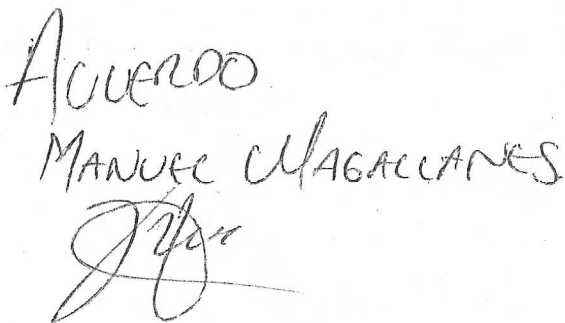 ACUERDO
MANUEL MAGALLANES